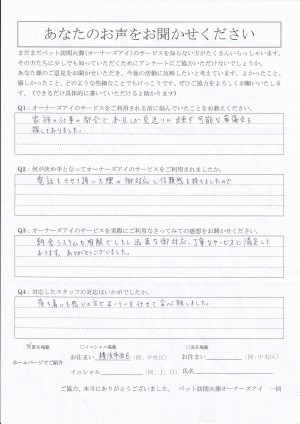 あなたのお声をお聞かせください
まだまだペット訪問火葬(オーナーズアイ)のサービスを知らない方がたくさんいらっしゃいます。
その方たちに少しでも知っていただくためにアンケートにご協力いただけないでしょうか。
あなた様のご意見をお聞かせいただき、今後の活動に反映したいと考えています。よかったこと、
嬉しかったこと、どのような些細なことでもけっこうです。ぜひご協力をよろしくお願いいたし
ます。(できるだけ具体的に書いていただけると助かります)
Q1:オーナーズアイのサービスをご利用される前に悩んでいたことをお教えください。
家族の仕事の都合で本日しか見送りが出来ず可能な葬儀会を
探しておりました。
Q2:何が決め手となってオーナーズアイのサービスをご利用されましたか。
電話をさせて頂いた際の御対応に信頼感を持ちましたので
Q3:オーナーズアイのサービスを実際にご利用なさってみての感想をお聞かせください。
料金システムも明解でしたし迅速な御対応、丁寧なサービスに満足して
おります。ありがとうございました。
Q4:対応したスタッフの対応はいかがでしたか。
落ち着いた感じの方でおっしゃいを任せて安心致しました。
匿名掲載
○イニシャル掲載
○実名掲載
ホームページでご紹介
お住まい 横浜市西区 (例:中央区)
お住まい (例:中央区)
イニシャル (例:J、I)
氏名
ご協力、本当にありがとうございました。 ペット訪問火葬オーナーズアイ 一同